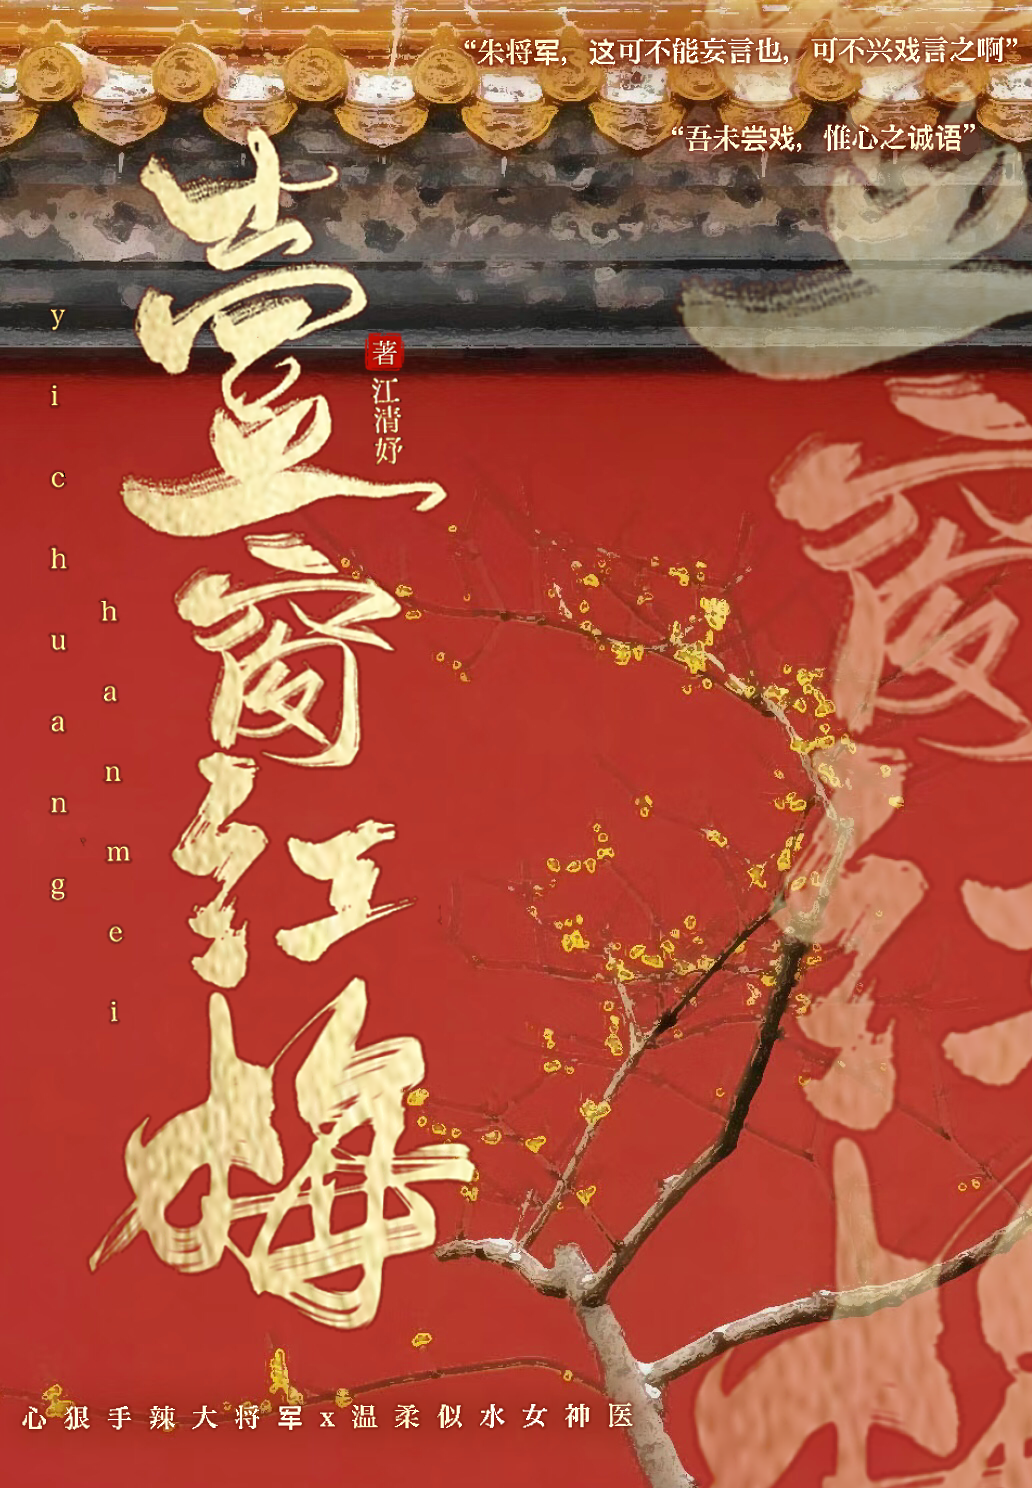 “朱将军，这可不能妄言也，可不兴戏言之啊”
“吾未尝戏，惟心之诚语”
壹窗红梅
著
江清妤
yichuang
hanmei
心狠手辣大将军x温柔似水女神医
壹窗红梅